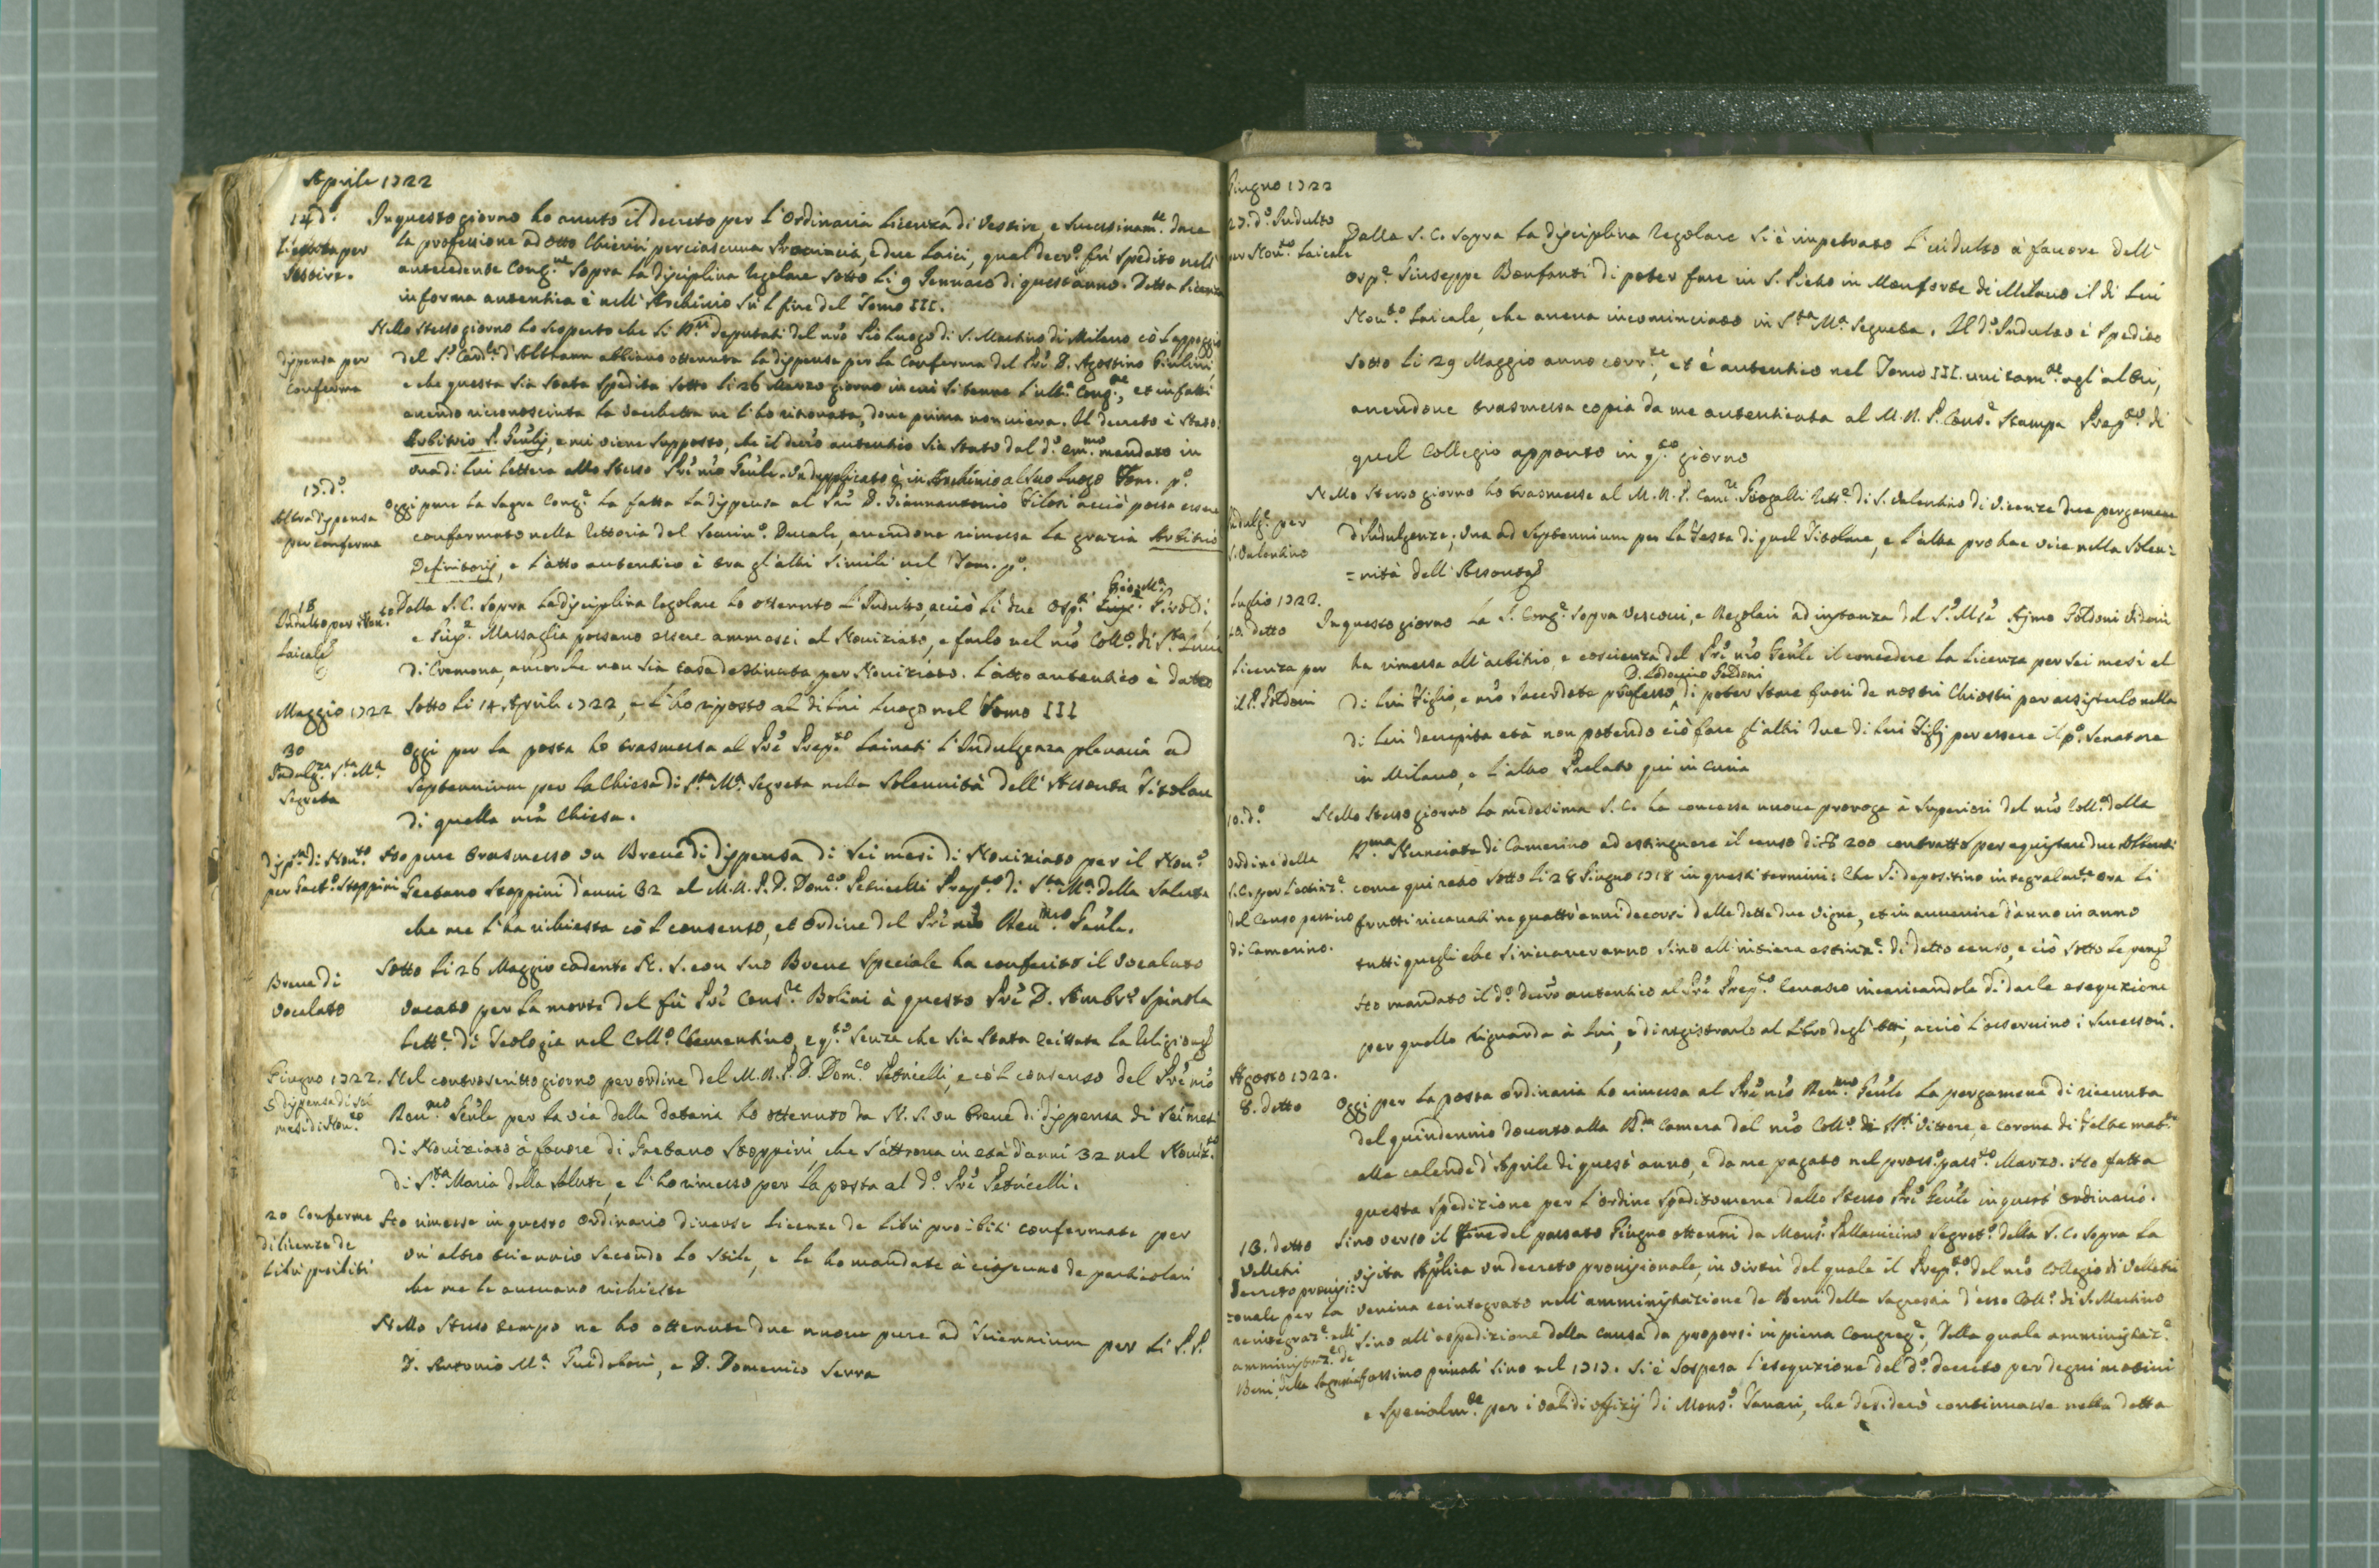 Aprile 1722
14 d.º In questo giorno ho avuto il decreto per l'Ordinaria Licenza di Vestire, e successivam.te dare
Licenza per la professione ad otto Chierici per ciascuna Provincia, e due Laici, qual decr.º fu spedito nell'
Vestire. antecedente Cong.ne sopra la disciplina Regolare sotto li 9 Gennaro di quest'anno. Detta Licenza
in forma autentica è nell'Archivio sù 'l fine del Tomo III.
Nello stesso giorno ho scoperto che li deputati del nrõ Pio Luogo di S. Martino di Milano cõ l'appoggio
dispensa per del S.r Card.le d'Althann abbiano ottenuta la dispensa per la Conferma del Prẽ D. Agostino Giulini
Conferma e che questa sia stata spedita sotto li 26 Marzo giorno in cui si tenne l'ult.a Cong.ne, et infatti
avendo riconosciuta la vacchetta ve l'ho ritrovata, dove prima non v'era. Il decreto è stato:
Arbitrio P. Gẽnlis, e mi viene supposto, che il decrõ autentico sia stato dal d.º em.mo mandato in
una di lui lettera allo stesso Prẽ nrõ Gẽnle. Un dupplicato è in Archivio al suo luogo Tom. p.º
15. d.º
Altra dispensa Oggi pure la Sagra Cong.e ha fatta la dispensa al Prẽ D. Giannantonio Filosi acciò possa essere
per conferma confermato nella Rettoria del Semin.º Ducale, avendone rimessa la grazia Arbitrio
Definitorij, e l'atto autentico è tra gl'altri simili nel Tom. p.º
Gio: M.a
18 Dalla S. C. sopra la disciplina Regolare ho ottenuto l'Indulto, acciò li due Osp.ti Giroldi,
Indulto per Nov.to e Gius.e Massaglia possano essere ammessi al Noviziato, e farlo nel nrõ Coll.º di S.ta Lucia
Laicale di Cremona, ancorche non sia casa destinata per Noviziato. L'atto autentico è dato
Maggio 1722 sotto li 14 Aprile 1722, e l'ho riposto al di lui luogo nel Tomo III
30 Oggi per la posta ho trasmessa al Prẽ Prep.to Lainati l'Indulgenza plenaria ad
Indulg.za S.ta M.a Septennium per la Chiesa di S.ta M.a Segreta nella solennità dell'Assonta Titolare
Segreta
di quella nrã Chiesa.
disp.sa di Nov.to Ho pure trasmesso un Breve di dispensa di sei mesi di Noviziato per il Nov.º
per Gaet.º Stoppini Gaetano Stoppini d'anni 32 al M. R. P. D. Dom.co Petricelli Prep.to di S.ta M.a della Salute
che me l'ha richiesta cõ 'l consenso, et ordine del Prẽ nrõ Rev.mo Gẽnle.
Breve di Sotto li 26 Maggio cadente N. S. con suo Breve speciale ha conferito il vocalato
vocalato vacato per la morte del fù Prẽ Cons.re Bolini à questo Prẽ D. Ambr.º Spinola
Lett.e di Teologia nel Coll.º Clementino, e q.to senza che sia stata eccittata la Religione
Giugno 1722. Nel controscritto giorno per ordine del M. R. P. D. Dom.co Petricelli, e cõ 'l consenso del Prẽ nrõ
5 dispensa di sei Rev.mo Gẽnle per la via della dataria ho ottenuto da N. S. un Breve di dispensa di sei mesi
mesi di Nov.to di Noviziato à favore di Gaetano Stoppini, che s'attrova in età d'anni 32 nel Noviz.to
di S.ta Maria della Salute, e l'ho rimesso per la posta al d.º Prẽ Petricelli.
20 Conferme Ho rimesse in questo ordinario diverse Licenze de Libri proibiti confermate per
di licenze de un'altro triennio secondo lo stile, e le ho mandate à ciascuno de particolari
Libri proibiti che me le avevano richieste
Nello stesso tempo ne ho ottenute due nuove pure ad Triennium per li P.P.
D. Antonio M.a Guidoboni, e D. Domenico Serra
Giugno 1722
27. d.º Indulto Dalla S. C. sopra la disciplina Regolare si è impetrato l'indulto à favore dell'
per Nov.to Laicale osp.e Giuseppe Bonfanti di poter fare in S. Pietro in Monforte di Milano il di lui
Nov.to Laicale, che aveva incominciato in S.ta M.a Segreta. Il d.º Indulto è spedito
sotto li 29 Maggio anno corr.te, et è autentico nel Tomo III. unitam.te agl'altri,
avendone trasmessa copia da me autenticata al M. R. P. Cons.e Stampa Prep.to di
quel Collegio apponto in q.to giorno
Nello stesso giorno ho trasmesse al M. R. P. Rett.e di S. Valentino di Vicenza due pergamene
Indulg.e per d'Indulgenze; una ad septennium per la Festa di quel Titolare, e l'altra pro hac vice nella solen=
S. Valentino
=nità dell'Assonta
Luglio 1722.
10. detto In questo giorno la S. Cong.e sopra Vescovi, e Regolari ad instanza del S.r Mse Goldoni Vidoni
Licenza per ha rimessa all'arbitrio, e coscienza del Prẽ nrõ Gẽnle il concedere la Licenza per sei mesi al
D. Lodovico Goldoni
il P. Goldoni di lui Figlio, e nrõ sacerdote professo, di poter stare fuori de nostri Chiostri per assisterlo nella
di lui decrepita età non potendo ciò fare gl'altri due di lui Figlj per essere il p.º Senatore
in Milano, e l'altro Prelato qui in Curia
10. d.º Nello stesso giorno la medesima S. C. ha concessa nuova proroga à superiori del nrõ Coll.º della
ordine della Nunciata di Camerino ad estinguere il censo di 200 contratto per acquistare due
S. C. per l'estinz.e come qui retro sotto li 28 Giugno 1718 in questi termini: Che si depositino integralm.te ora li
del Censo passivo frutti ricavati ne quattr'anni decorsi dalle dette due vigne, et in avvenire d'anno in anno
di Camerino. tutti quegli che si ricaveranno sino all'intiera estinz.e di detto censo, e ciò sotto le pene
Ho mandato il d.º decrõ autentico al Prẽ Prep.to incaricandole di darle esequzione
per quello riguarda à lui, e di registrarlo al Libro degli atti, acciò l'osservino i successori.
Agosto 1722.
8. detto Oggi per la posta ordinaria ho rimessa al Prẽ nrõ Rev.mo Gẽnle la pergamena di ricevuta
del quindennio dovuto alla R.da Camera dal nrõ Coll.º di S. Vittore, e Corona di Feltre
alle calende d'Aprile di quest'anno, e da me pagato nel pross.º pass.to Marzo. Ho fatta
questa spedizione per l'ordine speditomene dallo stesso Prẽ Gẽnle in quest'ordinario.
18. detto Sino verso il fine del passato Giugno ottenni da Mons.r Pallavicino Segret.º della S. C. sopra la
Velletri visita Aplica un decreto provisionale, in virtù del quale il Prep.to del nrõ Collegio di Velletri
Decreto provisi= veniva reintegrato nell'amministrazione de Beni della Sagrestia d'esso Coll.º di S. Martino
=onale per la sino all'espedizione della causa da proporsi in piena Congreg.e, della quale amministraz.e
reintegraz.e nell' fossimo privati sino nel 1717. Si è sospesa l'esequzione del d.º decreto per degni motivi
amministraz.e de
Beni della Sagrestia e specialm.te per i validi offizij di Mons.r Tanari, che desiderò continuasse nella detta